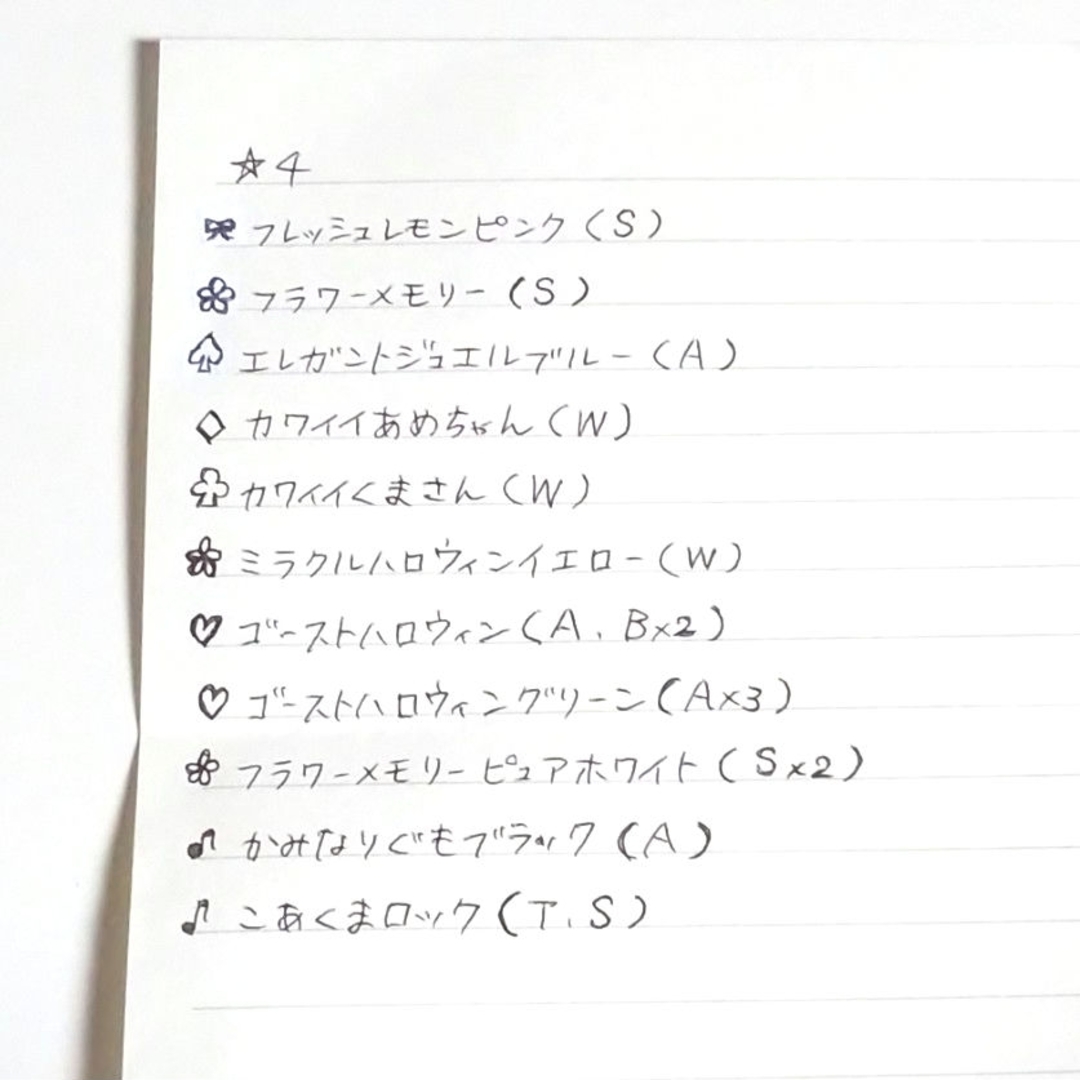 ☆4
フレッシュレモンピンク(S)
フラワーメモリー(S)
♤エレガントジュエルブルー(A)
◇カワイイあめちゃん(W)
♧カワイイくまさん(W)
ミラクルハロウィンイエロー(W)
♡ゴーストハロウィン(A、B×2)
♡ゴーストハロウィングリーン(A×3)
フラワーメモリーピュアホワイト(S×2)
♪かみなりぐもブラック(A)
♪こあくまロック(T、S)